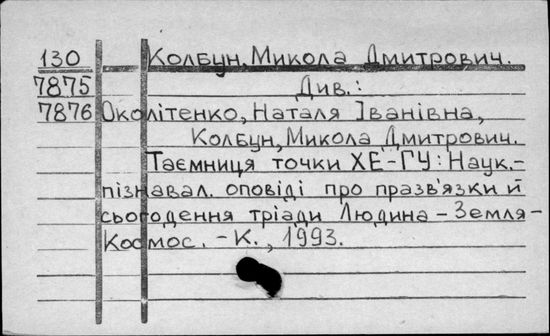 130 Колбун, Микола Дмитрович.
7875 Див.:
7876 Околітенко, Наталя Іванівна,
Колбун, Микола Дмитрович.
Таємниця точки ХЕ-ГУ: Наук.-
пізнавал. оповіді про празв'язки й
сьогодення тріади Людина - Земля -
Космос. - К., 1993.